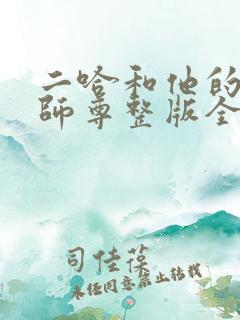 二哈和他的
師尊整版全
司佳葆
未经同意禁止转载